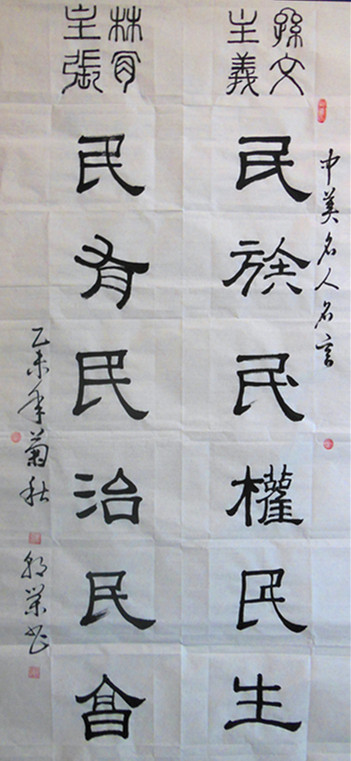 中美名人名言
孫文
主義
民族民權民生
林肯
主張
民有民治民享
乙未年菊秋
荣书